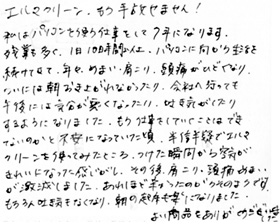 エルマクリーン、もう手放せません！
私はパソコンを使う仕事をして7年になります。
残業も多く、1日10時間以上、パソコンに向かう生活を
続けてきて、年々、めまい、肩こり、頭痛がひどくなり、
ついには朝おき上がれなかったり、会社へ行っても
午後には気分が悪くなったり、吐き気がしたり
するようになりました。もう仕事をしていくことはでき
ないのかと不安になっていた頃、半信半疑でエルマ
クリーンを使ってみたところ、つけた瞬間から空気が
きれいになった感じがし、その後、肩こり、頭痛、めまい
が激減しました。あれほど辛かったのがそのようです
もちろん吐き気もなくなり、朝の起床も楽になりました。
よい商品をありがとうございます